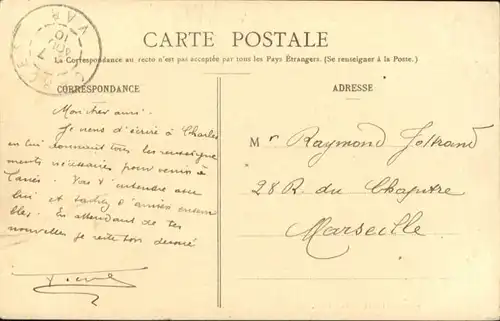 VAR
CARTE POSTALE
La Correspondance au recto n'est pas acceptée par tous les Pays Étrangers. (Se renseigner à la Poste.)
CORRESPONDANCE
Mon cher ami.
Je viens d'écrire à Charles
en lui donnant tous les renseigne
ments nécessaires pour venir à
et
bles. En attendant de tes
nouvelles je reste ton dévoué
ADRESSE
Mr Raymond
28 R. du Chapitre
Marseille